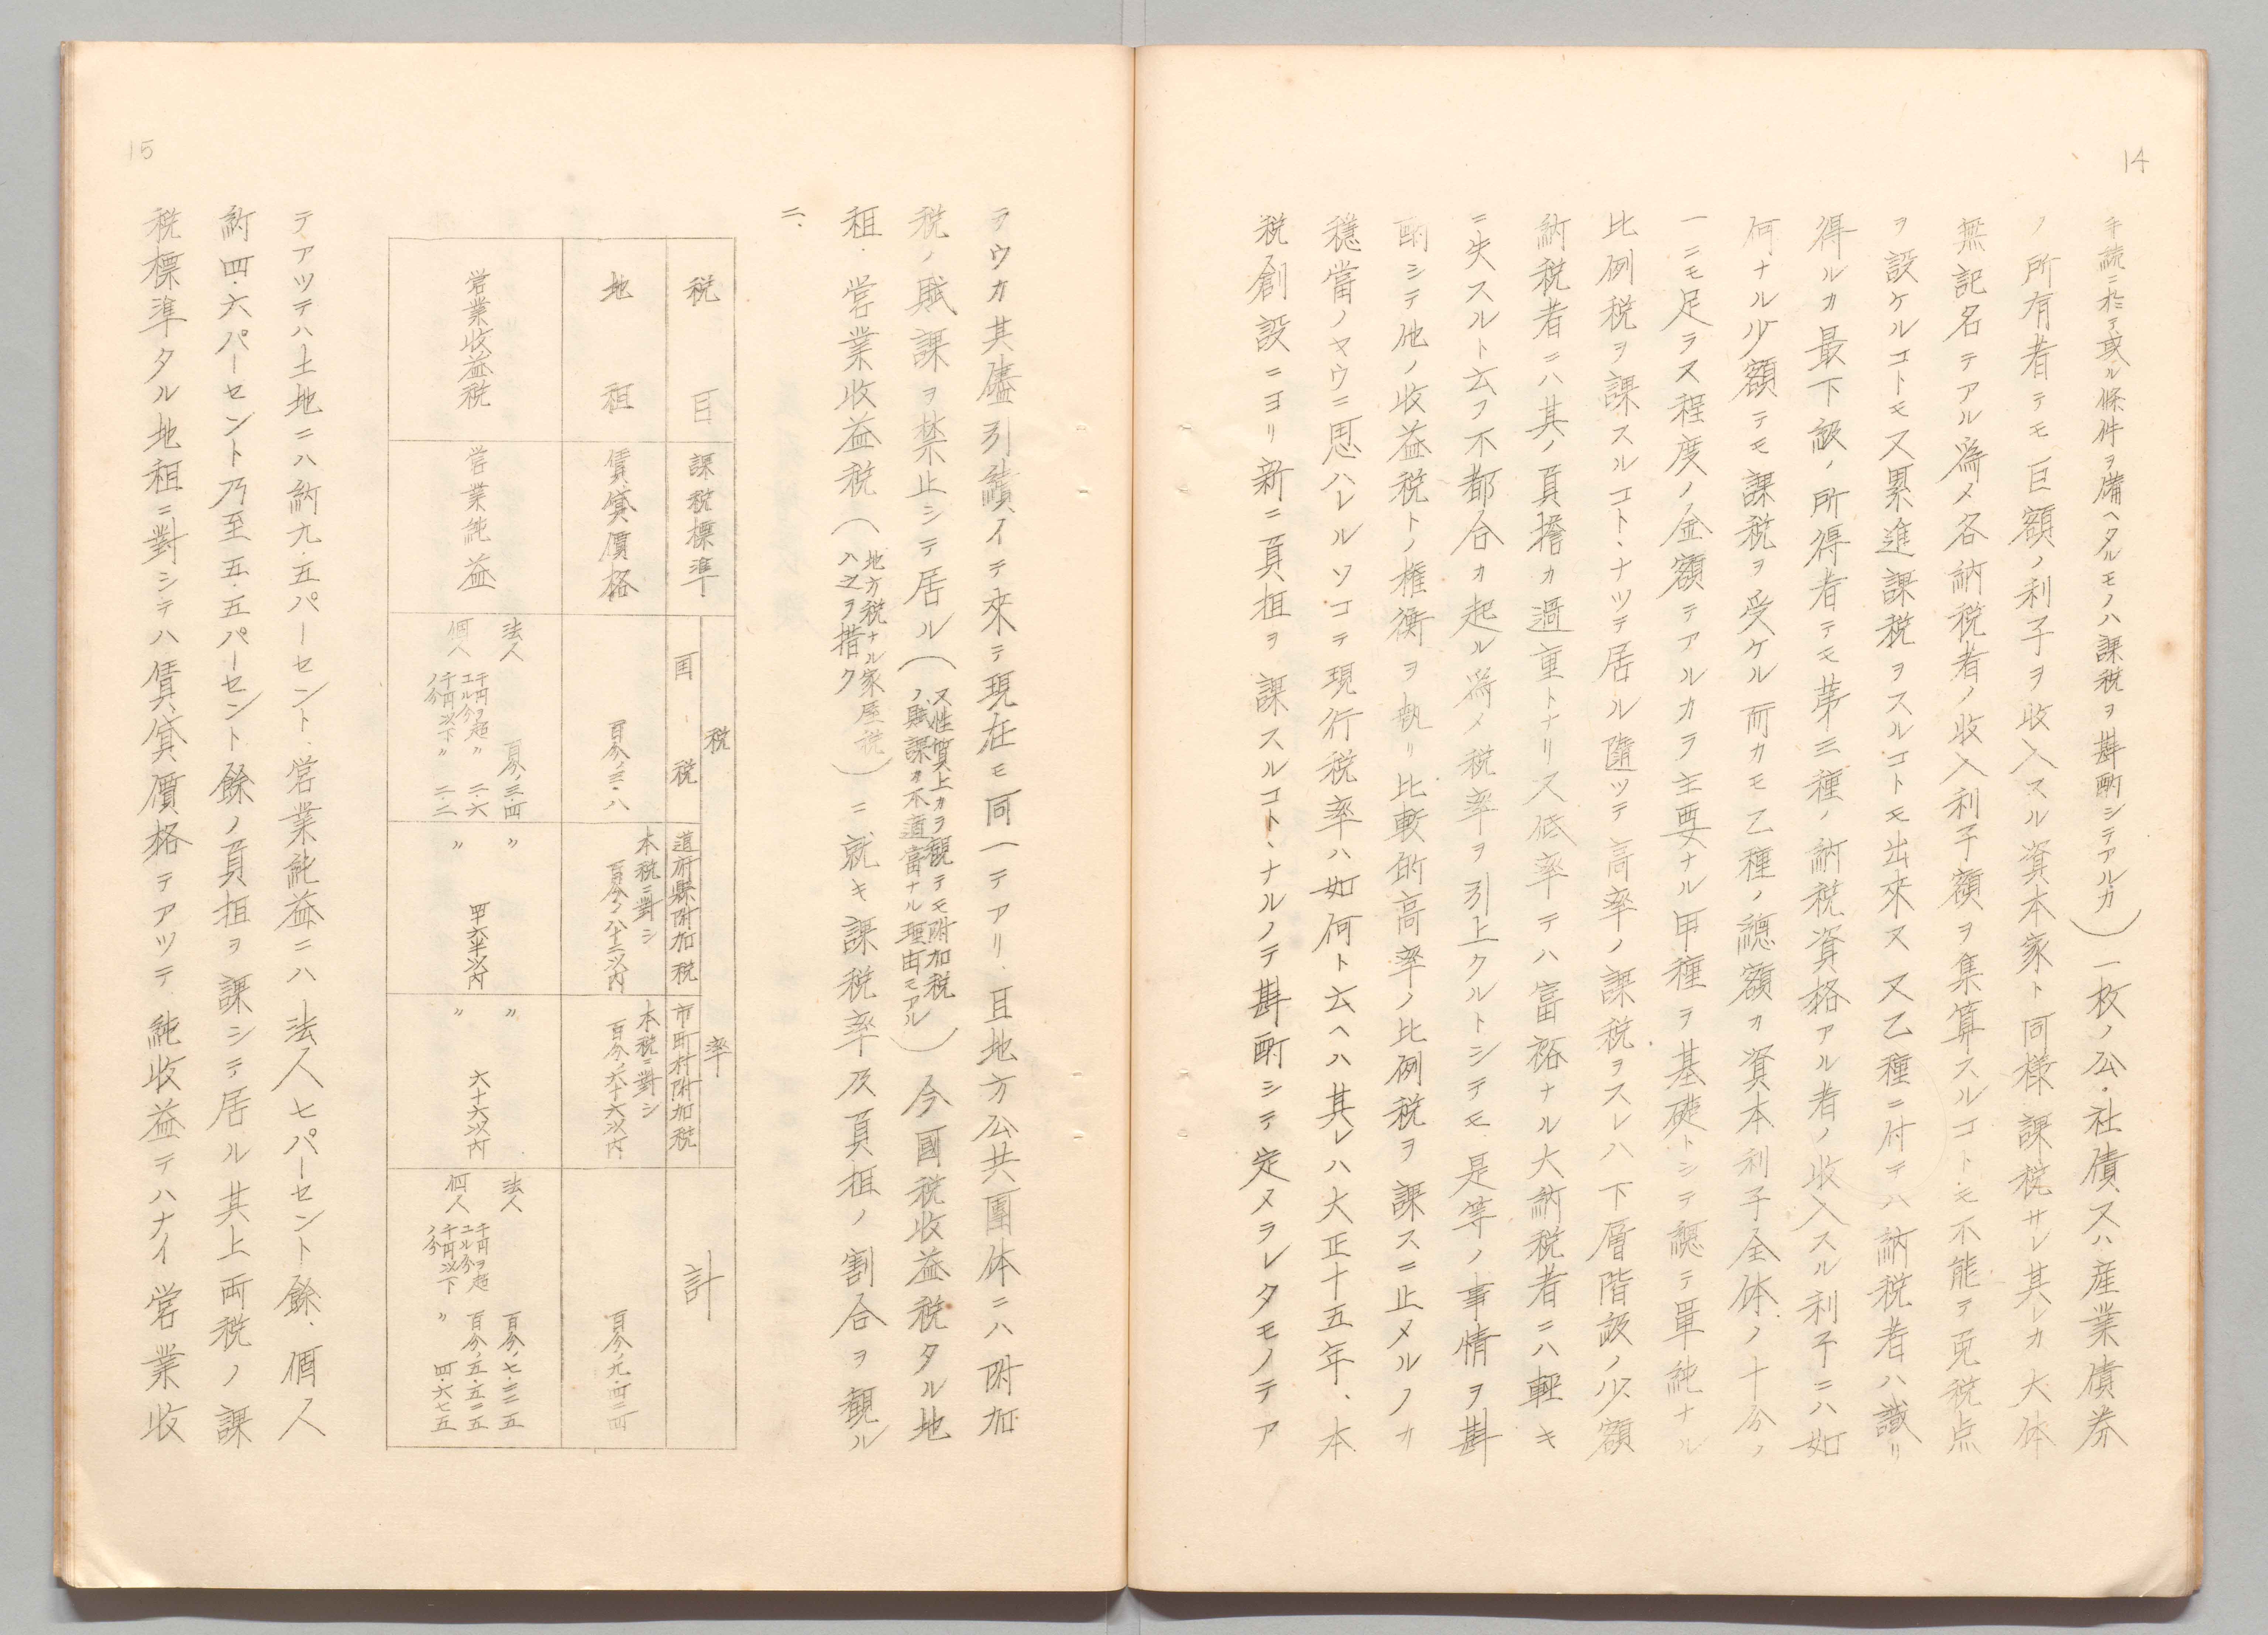 14
手続ニ於テ或ル條件ヲ備ヘタルモノハ課税ヲ斟酌シテアルカ）一枚ノ公・社債又ハ産業債券
ノ所有者テモ巨額ノ利子ヲ收入スル資本家ト同様課税サレ其レカ大体
無記名テアル爲メ各納税者ノ收入利子額ヲ集算スルコトモ不能テ免税点
ヲ設ケルコトモ又累進課税ヲスルコトモ出來ス又乙種ニ付テハ納税者ハ識リ
得ルカ最下級ノ所得者テモ第三種ノ納税資格アル者ノ收入スル利子ニハ如
何ナル少額テモ課税ヲ受ケル而カモ乙種ノ總額カ資本利子全体ノ十分ノ
一ニモ足ラス程度ノ金額テアルカラ主要ナル甲種ヲ基礎トシテ總テ單純ナル
比例税ヲ課スルコトヽナツテ居ル隨ツテ高率ノ課税ヲスレハ下層階級ノ少額
納税者ニハ其ノ負擔カ過重トナリ又低率テハ富裕ナル大納税者ニハ輕キ
ニ失スルト云フ不都合カ起ル爲メ税率ヲ引上クルトシテモ是等ノ事情ヲ斟
酌シテ他ノ收益税トノ権衡ヲ執リ比較的高率ノ比例税ヲ課スニ止メルノカ
穏當ノヤウニ思ハレルソコテ現行税率ハ如何ト云ヘハ其レハ大正十五年、本
税創設ニヨリ新ニ負担ヲ課スルコトヽナルノテ斟酌シテ定メラレタモノテア
ラウカ其儘引續イテ來テ現在モ同一テアリ、且地方公共團体ニハ附加
税ノ賦課ヲ禁止シテ居ル（又性質上カラ観テモ附加税
ノ賦課ヲ不適當ナル理由モアル）今國税收益税タル地
租・営業收益税（地方税ナル家屋税
ハ之ヲ措ク）ニ就キ課税率及負担ノ割合ヲ観ル
ニ、
税目
課税標準
税率
国税
道府縣附加税
市町村附加税
計
地租
賃貸價格
百分ノ三・八
本税ニ對シ
百分ノ八十二以内
本税ニ對シ
百分ノ六十六以内
百分ノ九・四二四
営業收益税
営業純益
法人 百分ノ三・四
個人 千円ヲ超
エル分 〃 二・六
千円以下
ノ分 〃 二・二
〃
〃 四六半以内
〃
〃 六十六以内
法人 百分ノ七・二二五
個人 千円ヲ超
エル分 百分ノ五・五二五
千円以下
ノ分 〃 四・六七五
テアツテハ土地ニハ約九・五パーセント、営業純益ニハ法人七パーセント餘、個人
約四・六パーセント乃至五・五パーセント餘ノ負担ヲ課シテ居ル其上両税ノ課
税標準タル地租ニ對シテハ賃貸價格テアツテ、純收益テハナイ営業收
15